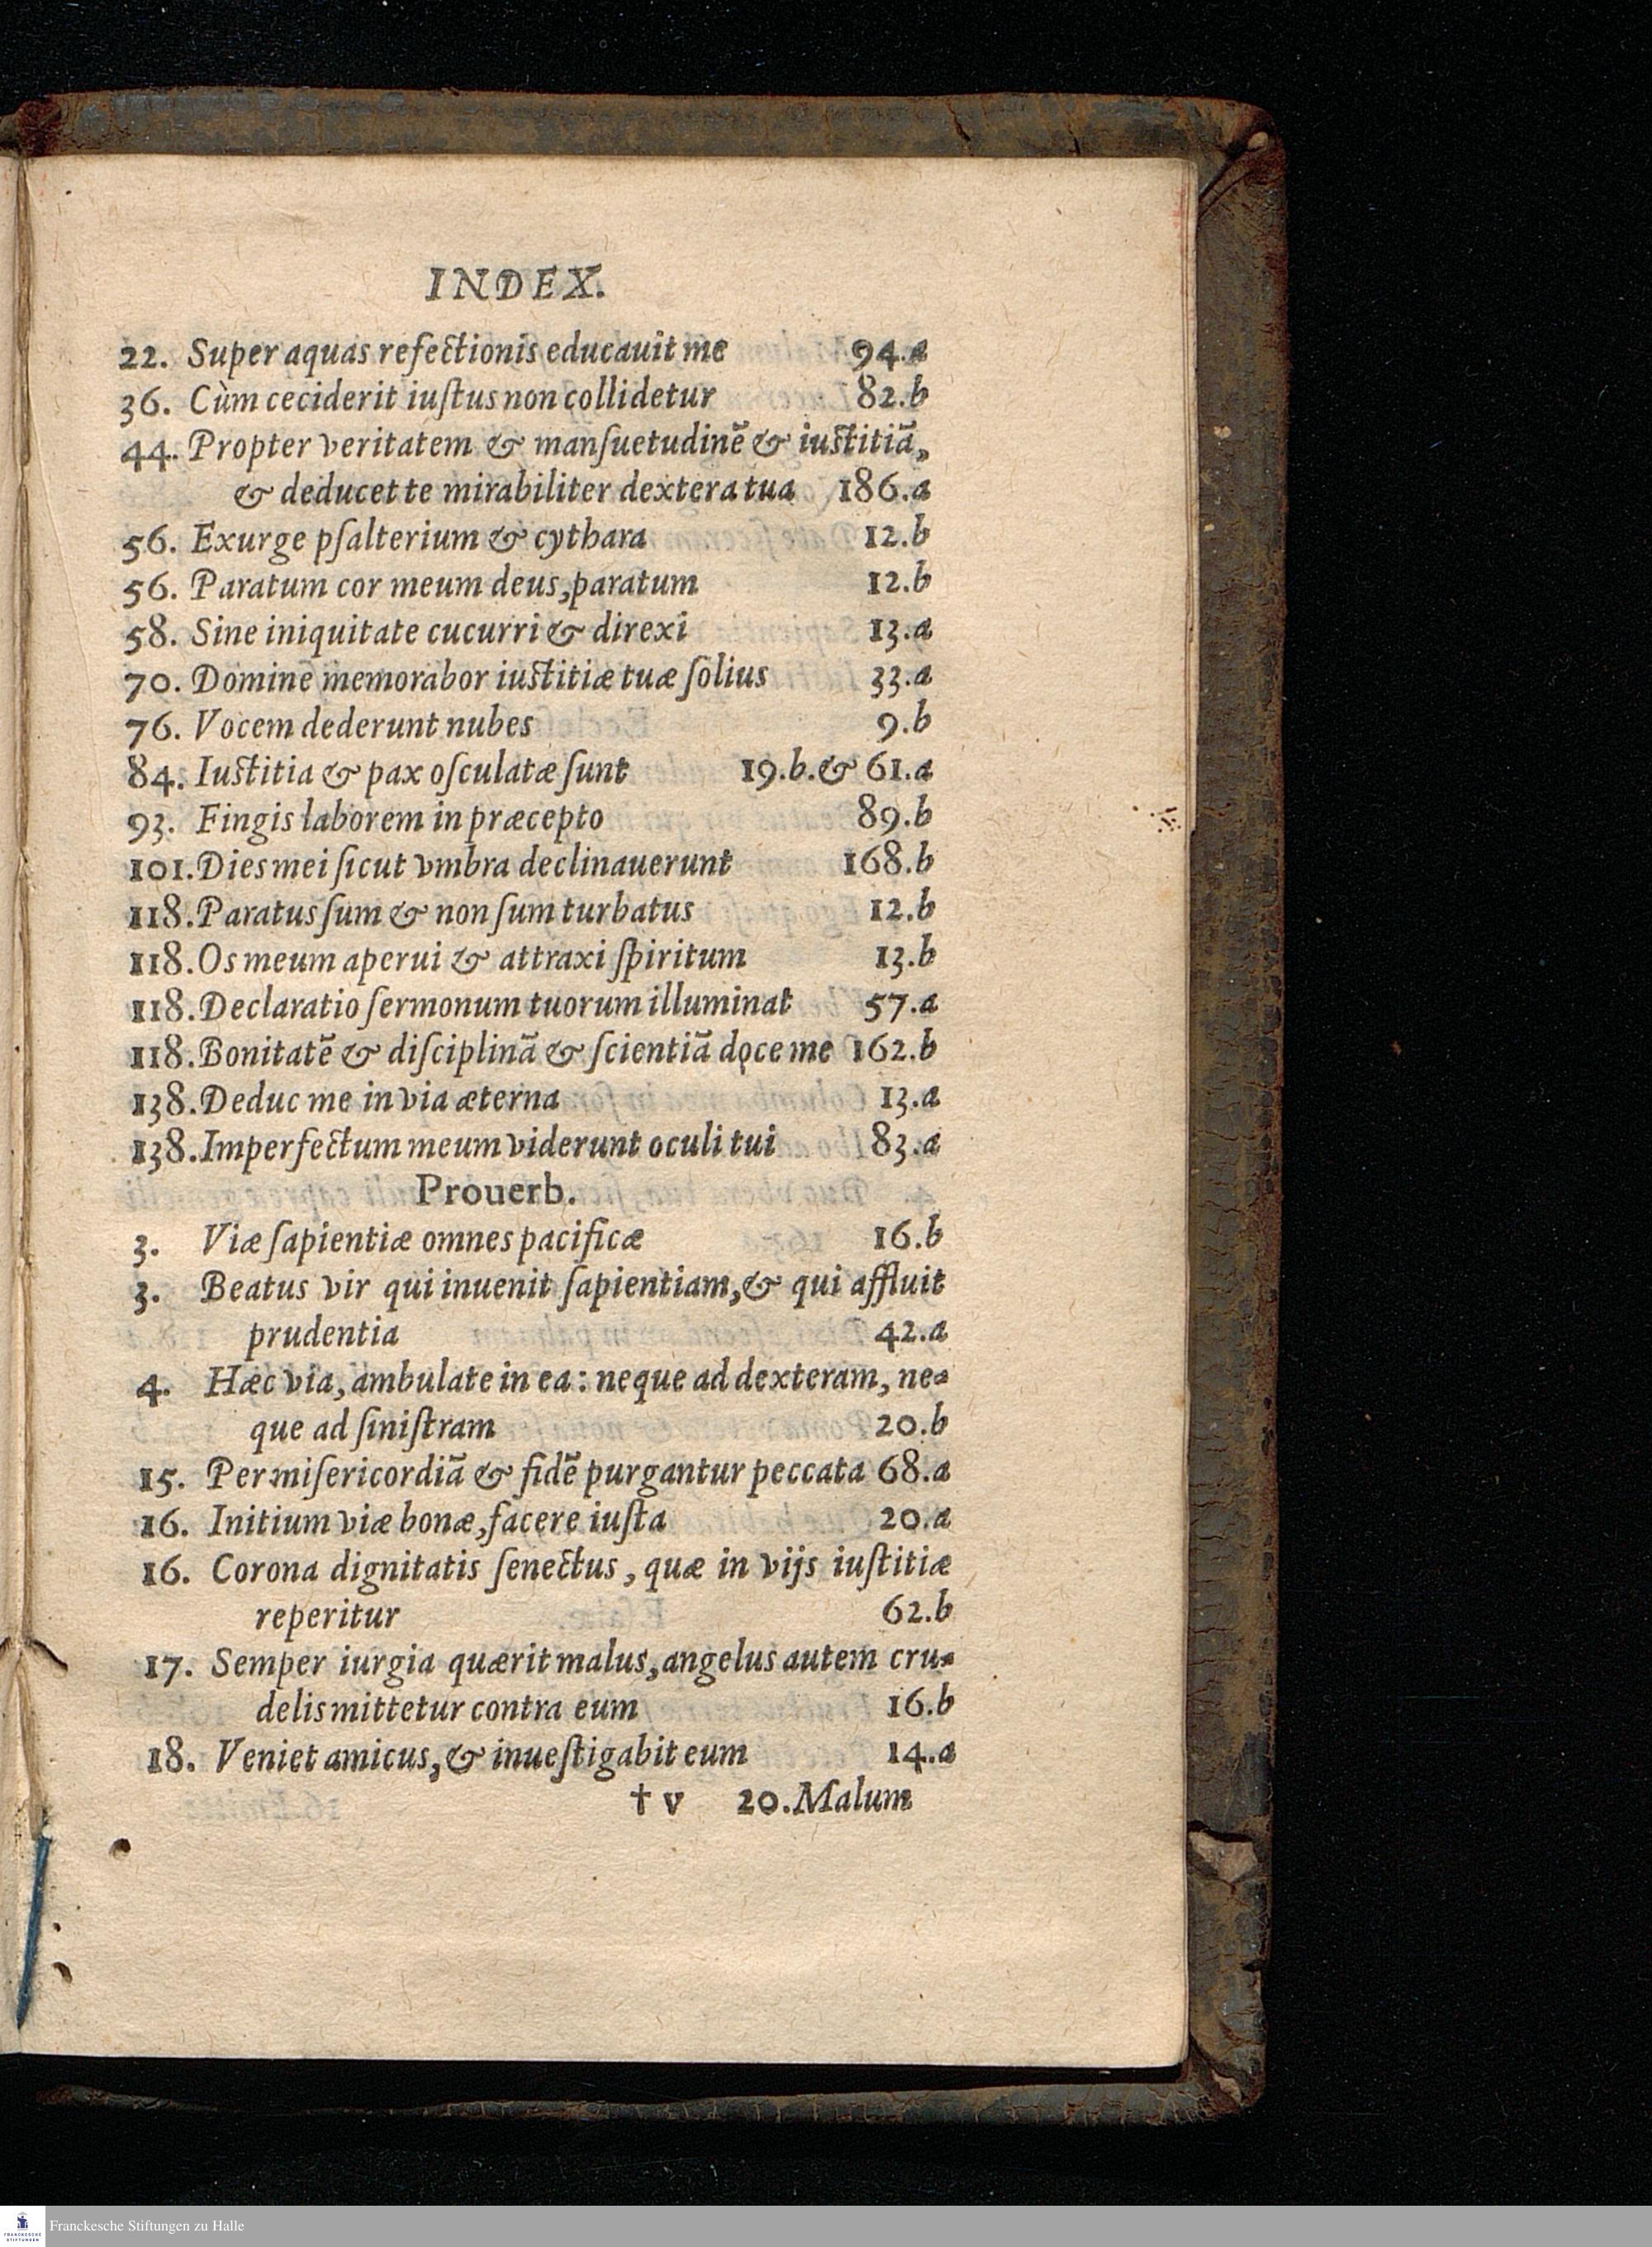 INDEX.
22. Super aquas refectionis educauit me 94.a
36. Cùm ceciderit iuſtus non collidetur 82.b
44. Propter veritatem & manſuetudinē & iuſtitiā,
& deducet te mirabiliter dextera tua 186.a
56. Exurge pſalterium & cythara 12.b
56. Paratum cor meum deus, paratum 12.b
58. Sine iniquitate cucurri & direxi 13.a
70. Domine memorabor iuſtitiæ tuæ ſolius 33.a
76. Vocem dederunt nubes 9.b
84. Iuſtitia & pax oſculatæ ſunt 19.b. & 61.a
93. Fingis laborem in præcepto 89.b
101. Dies mei ſicut vmbra declinauerunt 168.b
118. Paratus ſum & non ſum turbatus 12.b
118. Os meum aperui & attraxi ſpiritum 13.b
118. Declaratio ſermonum tuorum illuminat 57.a
118. Bonitatē & diſciplinā & ſcientiā doce me 162.b
138. Deduc me in via æterna 13.a
138. Imperfectum meum viderunt oculi tui 83.a
Prouerb.
3. Viæ ſapientiæ omnes pacificæ 16.b
3. Beatus vir qui inuenit ſapientiam, & qui affluit
prudentia 42.a
4. Hæc via, ambulate in ea: neque ad dexteram, ne-
que ad ſiniſtram 20.b
15. Per miſericordiā & fidē purgantur peccata 68.a
16. Initium viæ bonæ, facere iuſta 20.a
16. Corona dignitatis ſenectus, quæ in vijs iuſtitiæ
reperitur 62.b
17. Semper iurgia quærit malus, angelus autem cru-
delis mittetur contra eum 16.b
18. Veniet amicus, & inueſtigabit eum 14.a
† v 20. Malum
FRANCKESCHE
STIFTUNGEN
Franckesche Stiftungen zu Halle